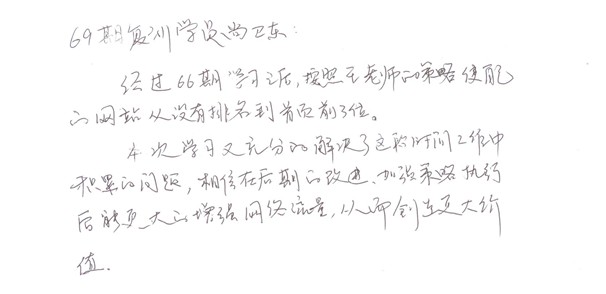 69期复训学员尚卫东:
经过66期学习之后,按照王老师的策略使配
的网站从没有排名到首页前3位。
本次学习又充分的解决了这段时间工作中
积累的问题,相信在后期的改进、加强策略执行
后能更大的增强网络流量,从而创造更大价
值.